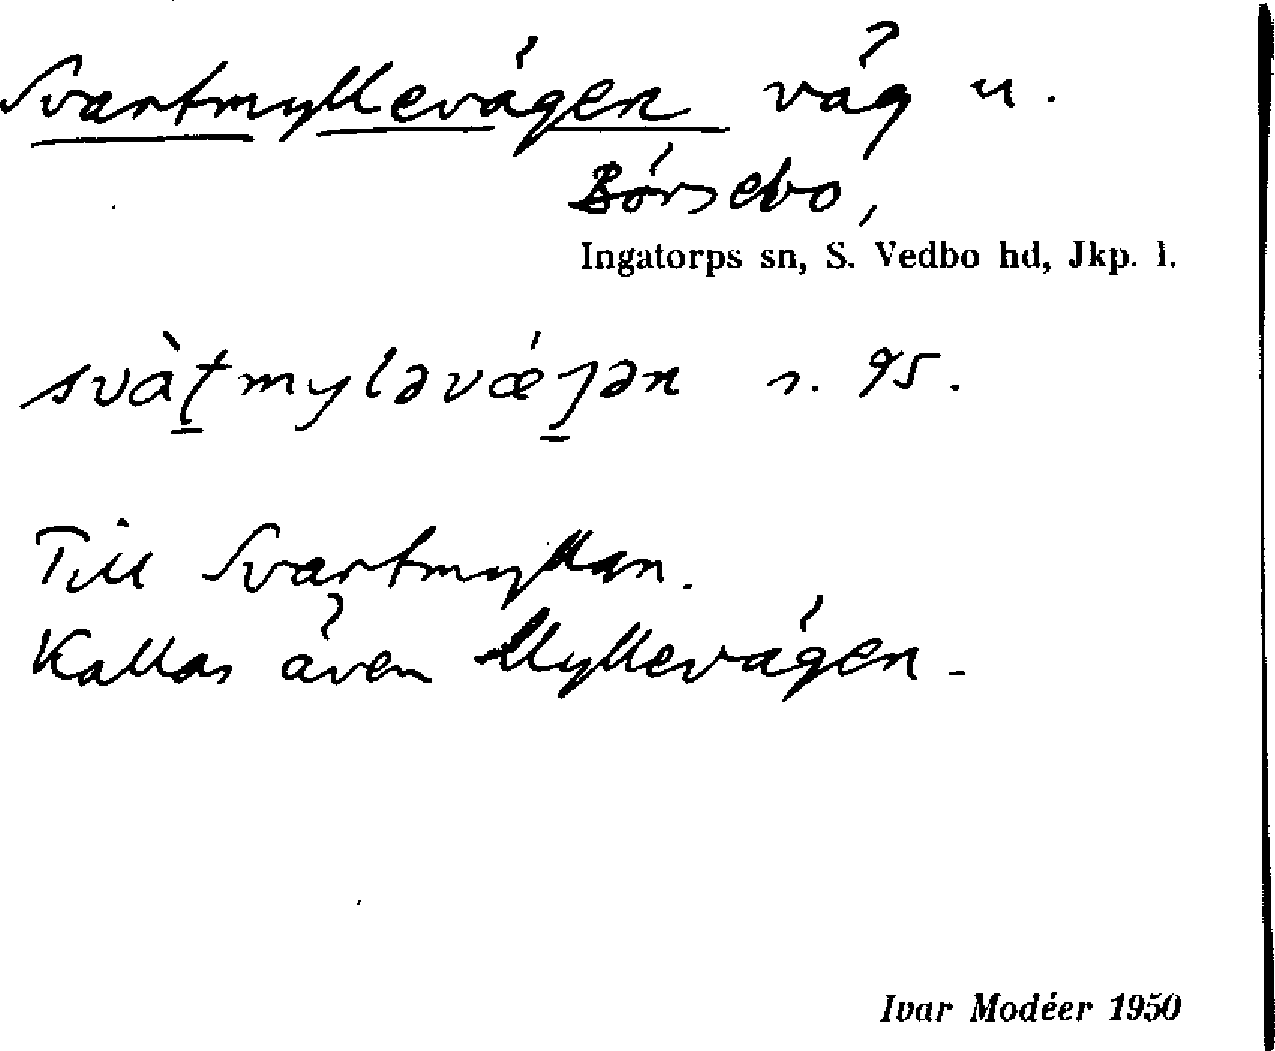 Svartmyllevägen väg u.
Börsebo,
Ingatorps sn, S. Vedbo hd, Jkp. l.
svàt̠myləvǽȷ̠ən s. 95.
Till Svartmyllan.
Kallas även Myllevägen.
Ivar Modéer 1950